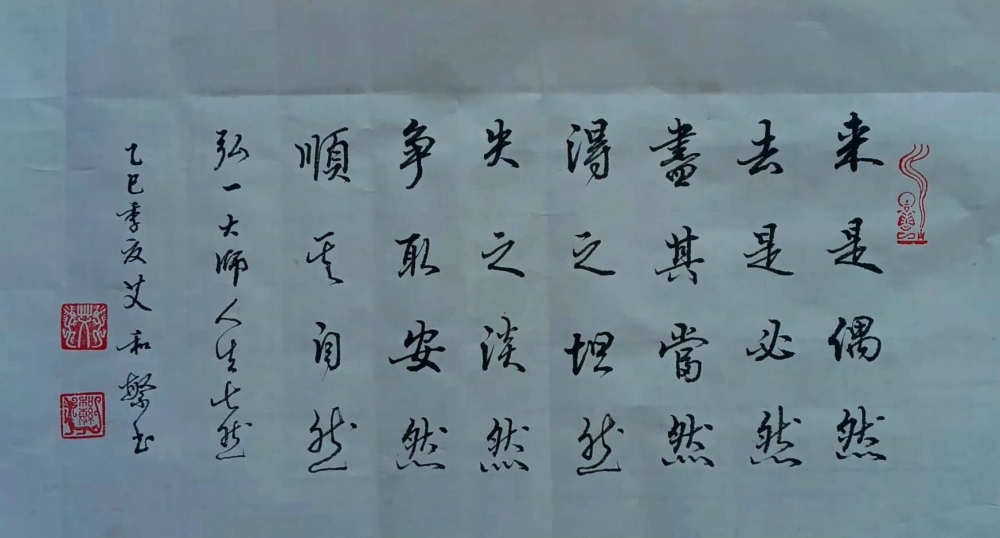 来是偶然
去是必然
盡其當然
得之坦然
失之淡然
争取安然
順其自然
弘一大師人生七然
乙巳季夏艾和书